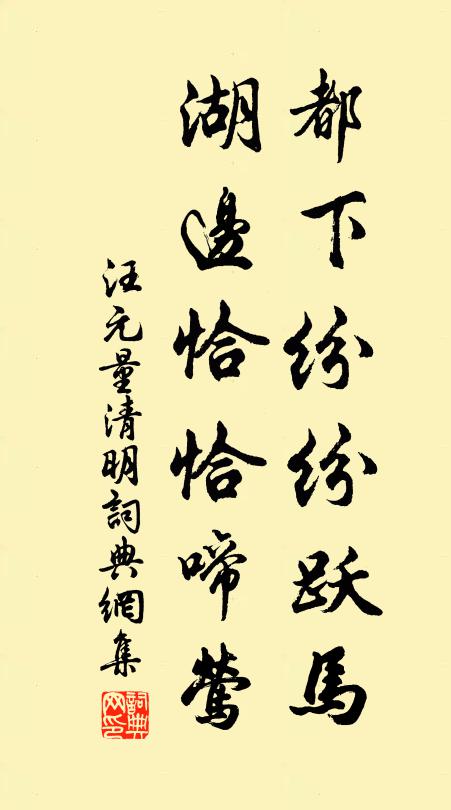 都下纷纷跃馬
湖邊恰恰啼鶯
汪元量清明詞典網集
詞典网印